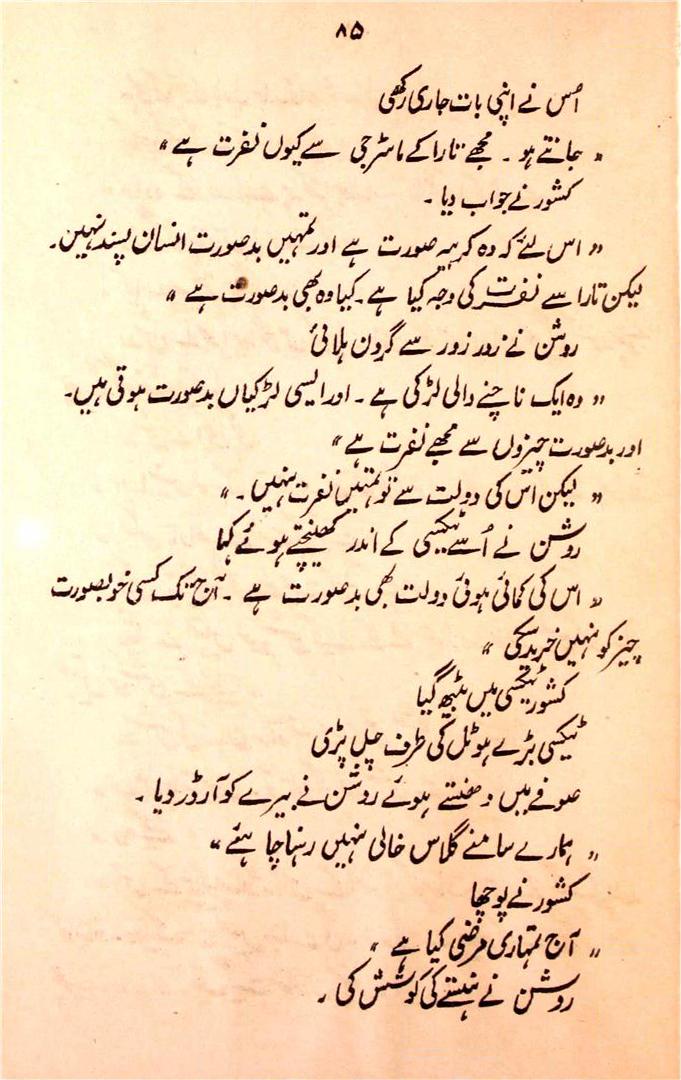 ۸۵
اُس نے اپنی بات جاری رکھی
" جانتے ہو ۔ مجھے تارا کے ماسٹر جی سے کیوں نفرت ہے "
کشور نے جواب دیا ۔
" اس لئے کہ وہ کریہہ صورت ہے اور تمہیں بدصورت انسان پسند نہیں۔
لیکن تارا سے نفرت کی وجہ کیا ہے ۔ کیا وہ بھی بدصورت ہے "
روشن نے زور زور سے گردن ہلائی
" وہ ایک ناچنے والی لڑکی ہے ۔ اور ایسی لڑکیاں بدصورت ہوتی ہیں۔
اور بدصورت چیزوں سے مجھے نفرت ہے "
" لیکن اس کی دولت سے تو تمہیں نفرت نہیں ۔ "
روشن نے اُسے ٹیکسی کے اندر کھینچتے ہوئے کہا
" اس کی کمائی ہوئی دولت بھی بدصورت ہے ۔ آج تک کسی خوبصورت
چیز کو نہیں خرید سکی "
کشور ٹیکسی میں بیٹھ گیا
ٹیکسی بڑے ہوٹل کی طرف چل پڑی
صوفے میں دھنستے ہوئے روشن نے بیرے کو آرڈر دیا ۔
" ہمارے سامنے گلاس خالی نہیں رہنا چاہئے "
کشور نے پوچھا
" آج تمہاری مرضی کیا ہے "
روشن نے ہنسنے کی کوشش کی ۔